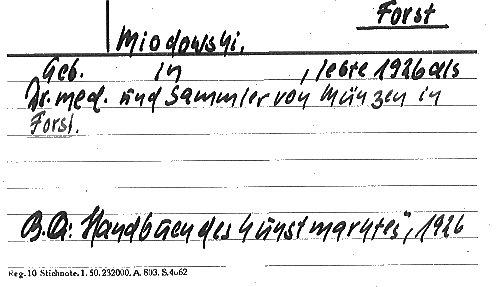 Forst
Miodowski.
Geb. in , lebte 1926 als
Dr. med. und Sammler von Münzen in
Forst.
B.Q.: Handbuch des Kunstmarktes", 1926
Reg. 10 Stichnote. 1. 50. 232000. A. 803. S. 4062